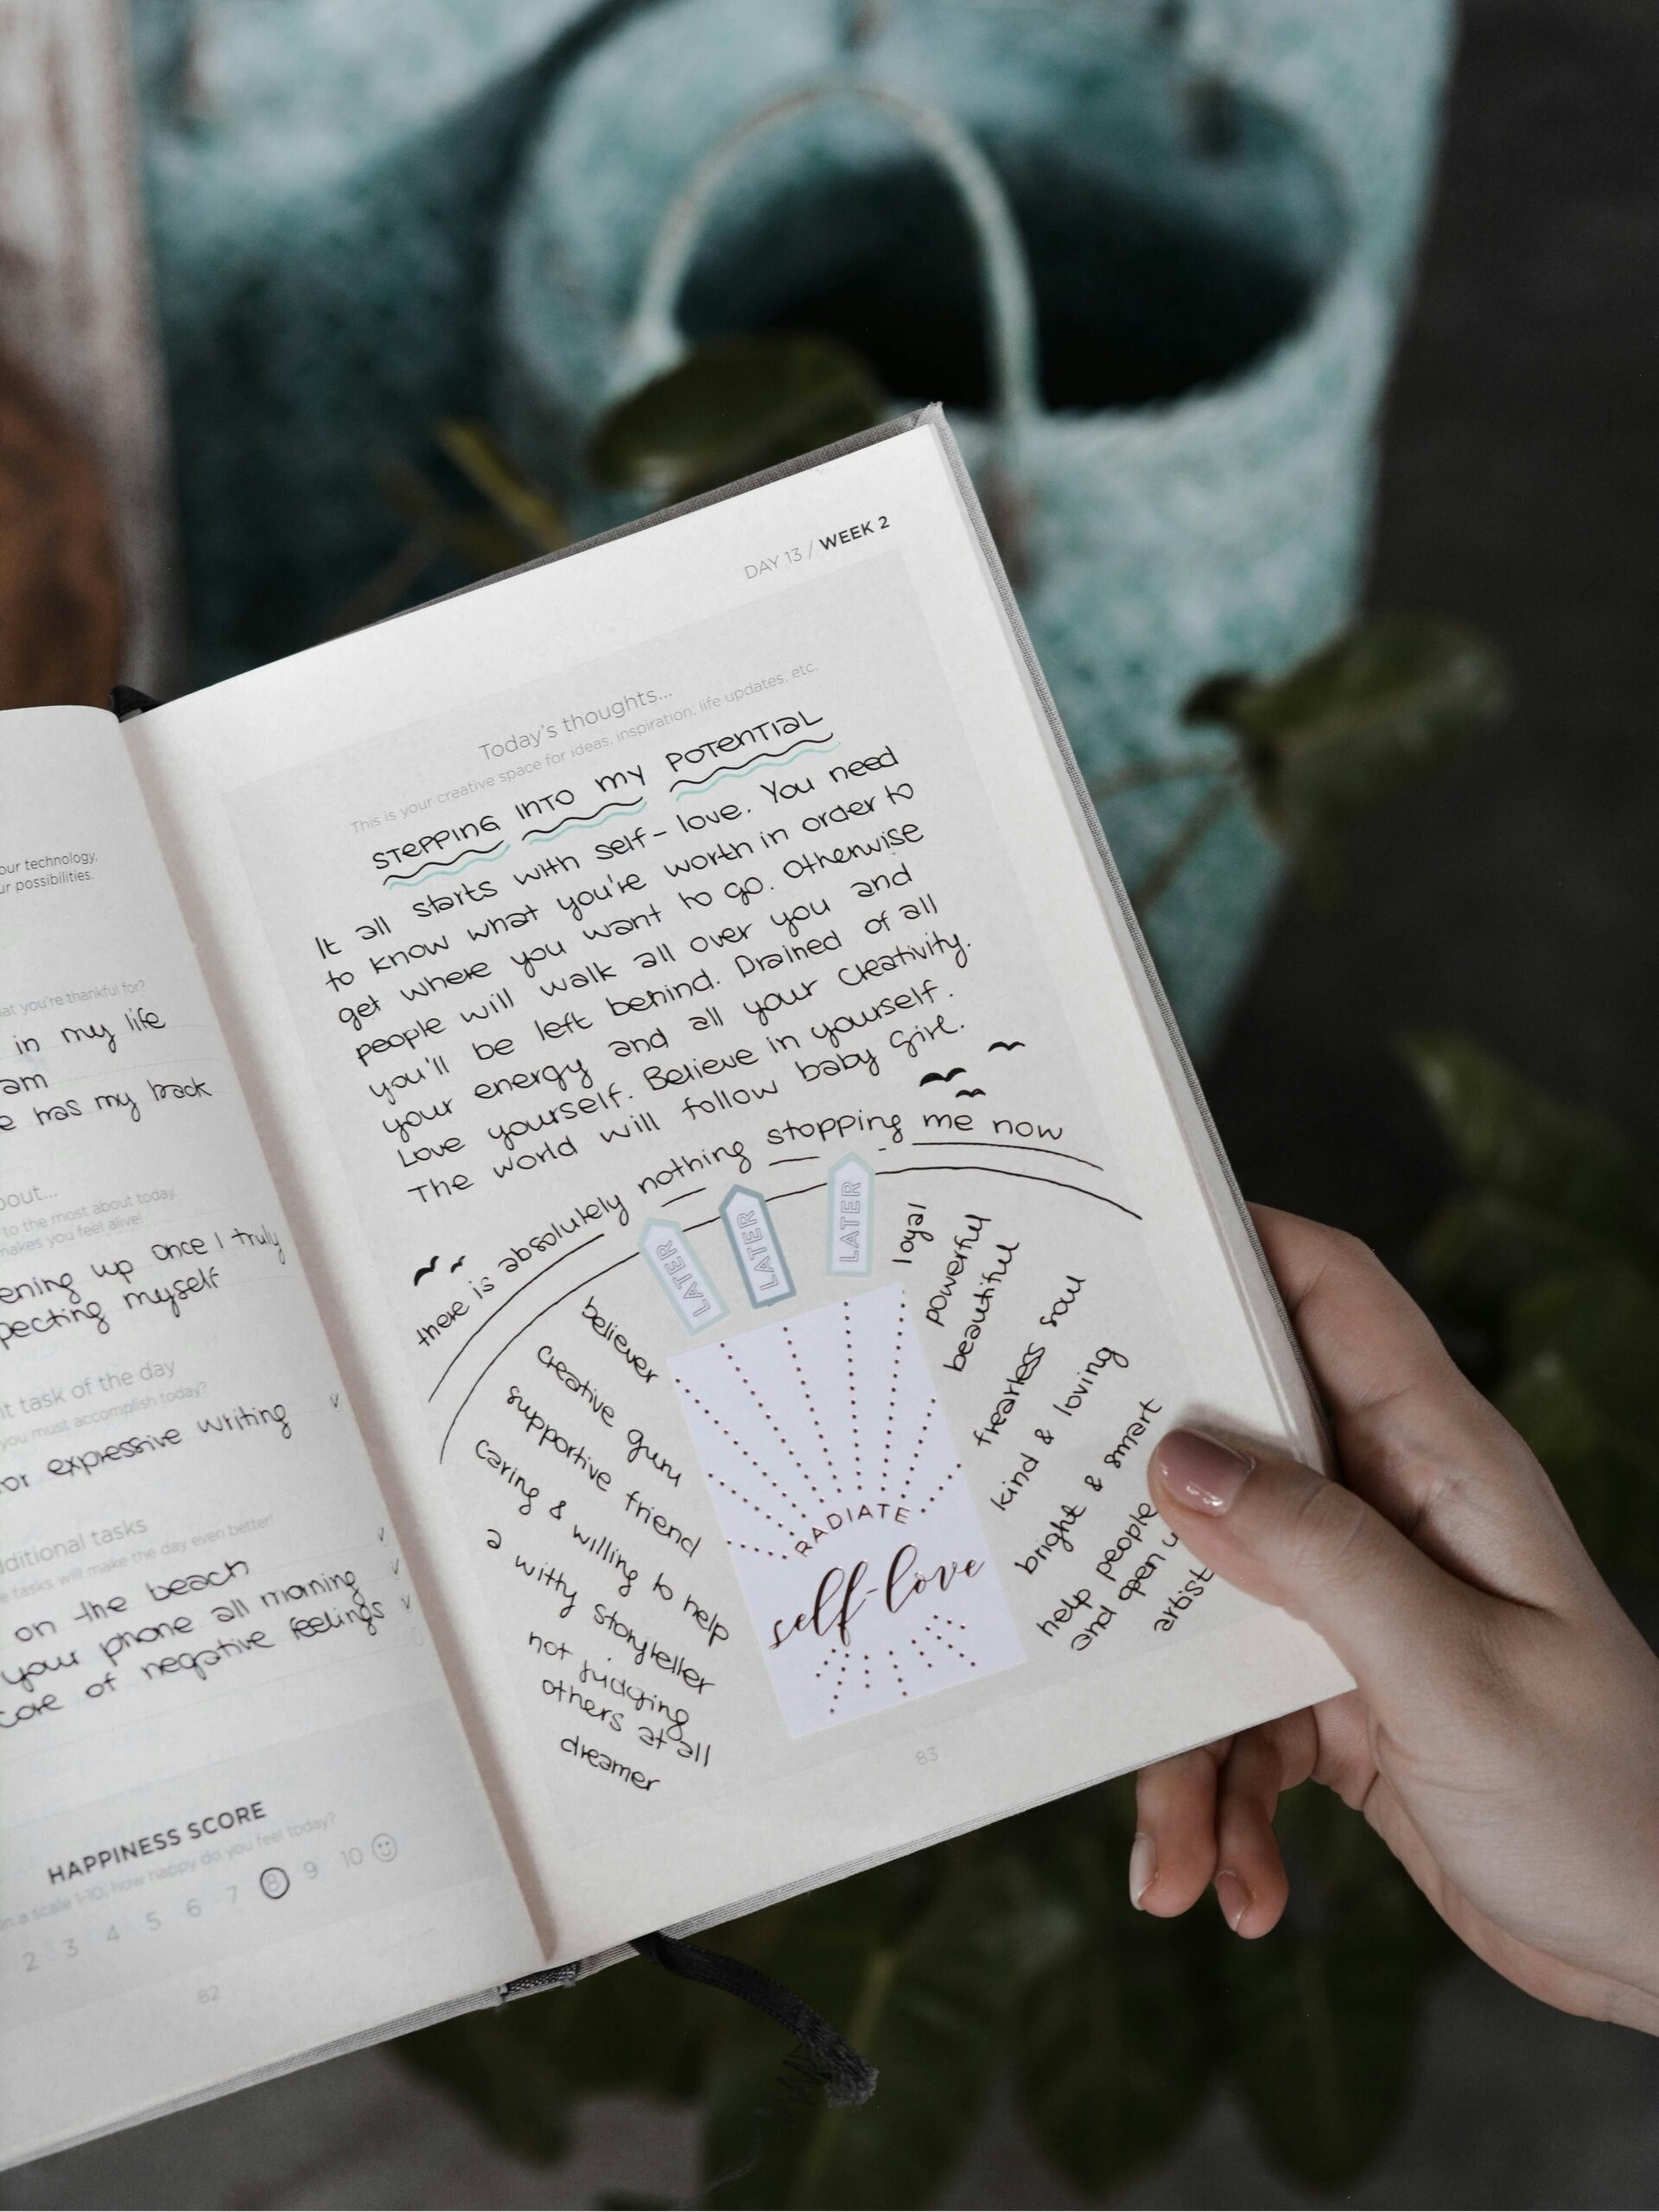 our technology.
ur possibilities.
at you're thankful for?
in my life
am
e has my back
out...
to the most about today,
makes you feel alive!
ening up once I truly
pecting myself
t task of the day
you must accomplish today?
or expressive writing
dditional tasks
e tasks will make the day even better!
on the beach
your phone all morning
core of negative feelings
HAPPINESS SCORE
on a scale 1-10, how happy do you feel today?
2 3 4 5 6 7 8 9 10
82
DAY 13 / WEEK 2
Today's thoughts...
This is your creative space for ideas, inspiration, life updates, etc.
STEPPING INTO MY POTENTIAL
It all starts with self-love. You need
to know what you're worth in order to
get where you want to go. Otherwise
people will walk all over you and
you'll be left behind. Drained of all
your energy and all your creativity.
Love yourself. Believe in yourself.
The world will follow baby girl.
there is absolutely nothing stopping me now
LATER
LATER
LATER
believer
creative guru
supportive friend
caring & willing to help
a witty storyteller
not judging
others at all
dreamer
RADIATE
self-love
loyal
powerful
beautiful
fearless soul
kind & loving
bright & smart
help people
and open u
artist
83